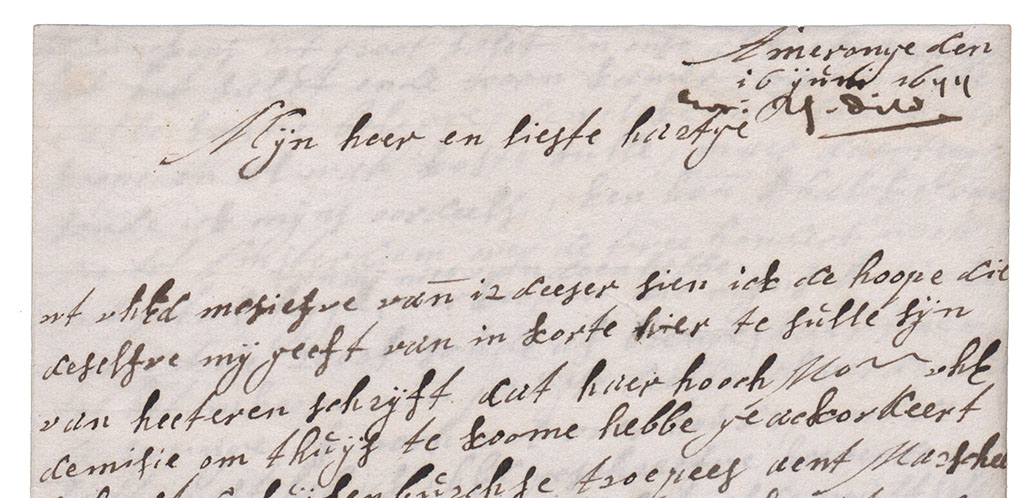 Ameronge den
16 yuni 1677
Mijn heer en lieste hartge
wt uhEd mesiefve van 12 deeser sien ick de hoope die
deselfve mij geeft van in korte hier te sulle sijn
van heeteren schrijft dat haer hooch Mo uhE
demisie om thuijs te koome hebbe geackordeert
troepees aent Marschee